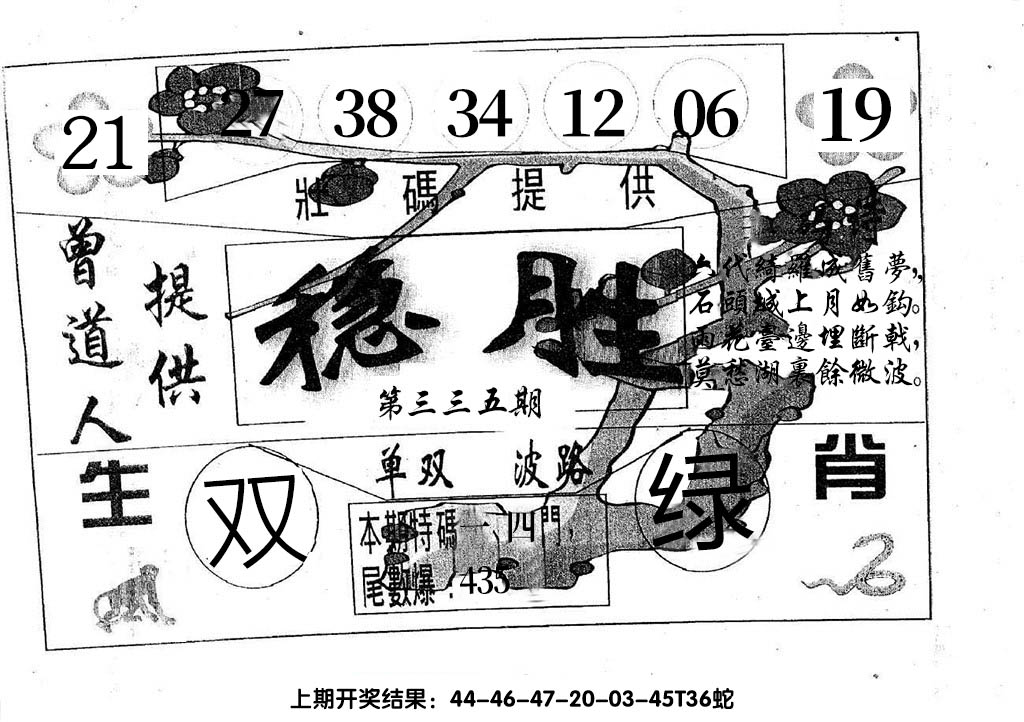 21 27 38 34 12 06 19
壯碼提供
特
曾道人
提供
稳胜
六代綺羅成舊夢，
石頭城上月如鈎。
雨花臺邊埋斷戟，
莫愁湖裏餘微波。
第三三五期
单双 波路
生肖
双
绿
本期特碼一、四門，
尾數爆:435
上期开奖结果：44-46-47-20-03-45T36蛇